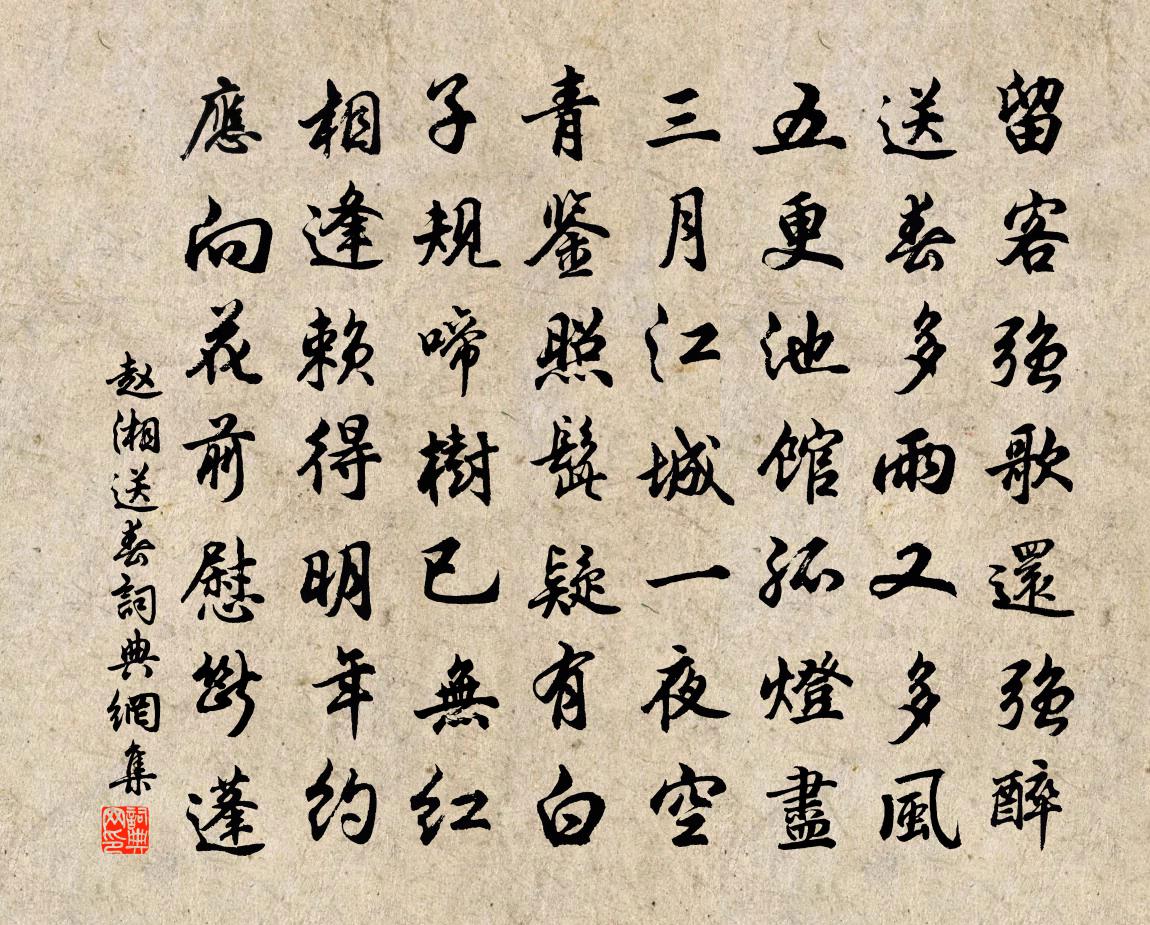 留客強歌還強醉
送春多雨又多風
五更池館孤燈盡
三月江城一夜空
青鉴照髭疑有白
子規啼樹已無紅
相逢赖得明年約
應向花前慰斷蓬
赵湘送春詞典網集
詞典网印